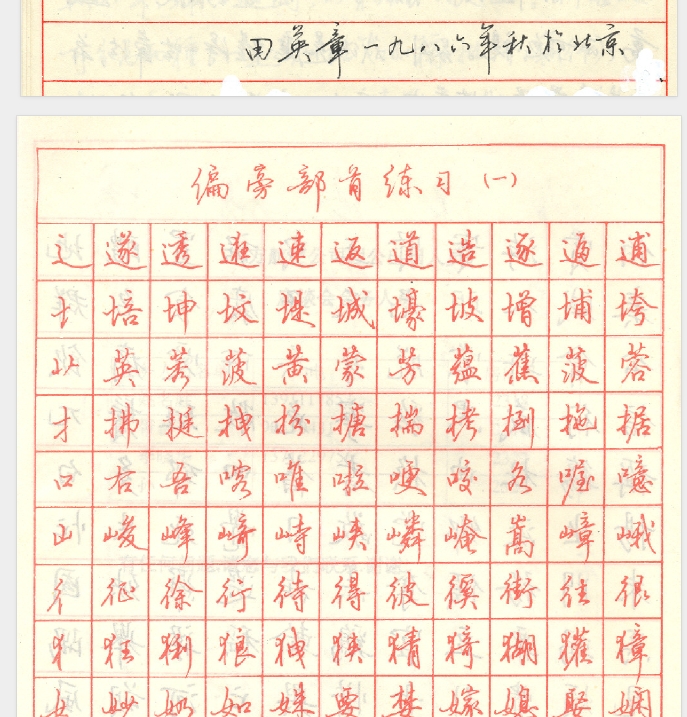 田英章一九八六年秋于北京
偏旁部首练习(一)
辶 遂 透 逛 速 返 道 造 逐 逼 逋
土 培 坤 坟 堤 城 壕 坡 增 埔 垮
艹 英 菱 黄 蒙 芳 蕴 蕉 菠 蓉
扌 拂 挺 拽 扮 搪 揣 拷 捌 拖 据
口 右 吾 喀 唯 啦 哽 咬 名 喔 噫
山 峻 峰 崎 峙 峡 嶙 崦 嵩 嶂 峨
彳 征 徐 行 待 得 彼 徯 街 往 很
犭 狂 猁 狼 狭 猜 猗 猢 獾 獐
女 妙 奶 如 姝 要 婪 嫁 媳 娶 娴